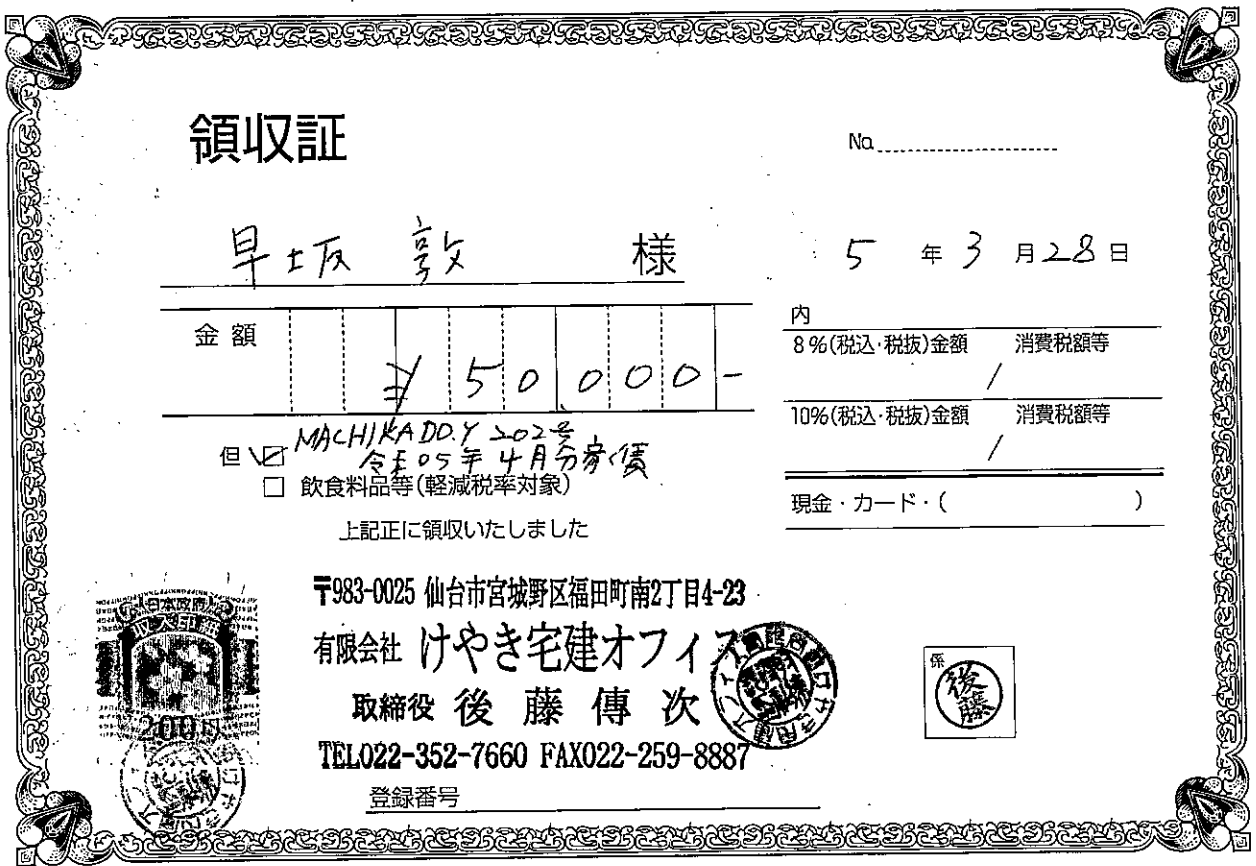 領収証
No.
早坂 敦 様
5 年 3 月 28 日
金額 ¥50000-
但 ☑ MACHIKADO.Y 202号
令和05年4月分家賃
□ 飲食料品等(軽減税率対象)
上記正に領収いたしました
内
8%(税込・税抜)金額 消費税額等
/
10%(税込・税抜)金額 消費税額等
/
現金・カード・( )
日本政府
収入印紙
200円
〒983-0025 仙台市宮城野区福田町南2丁目4-23
有限会社 けやき宅建オフィス
取締役 後藤傳次
TEL022-352-7660 FAX022-259-8887
登録番号
係
後藤